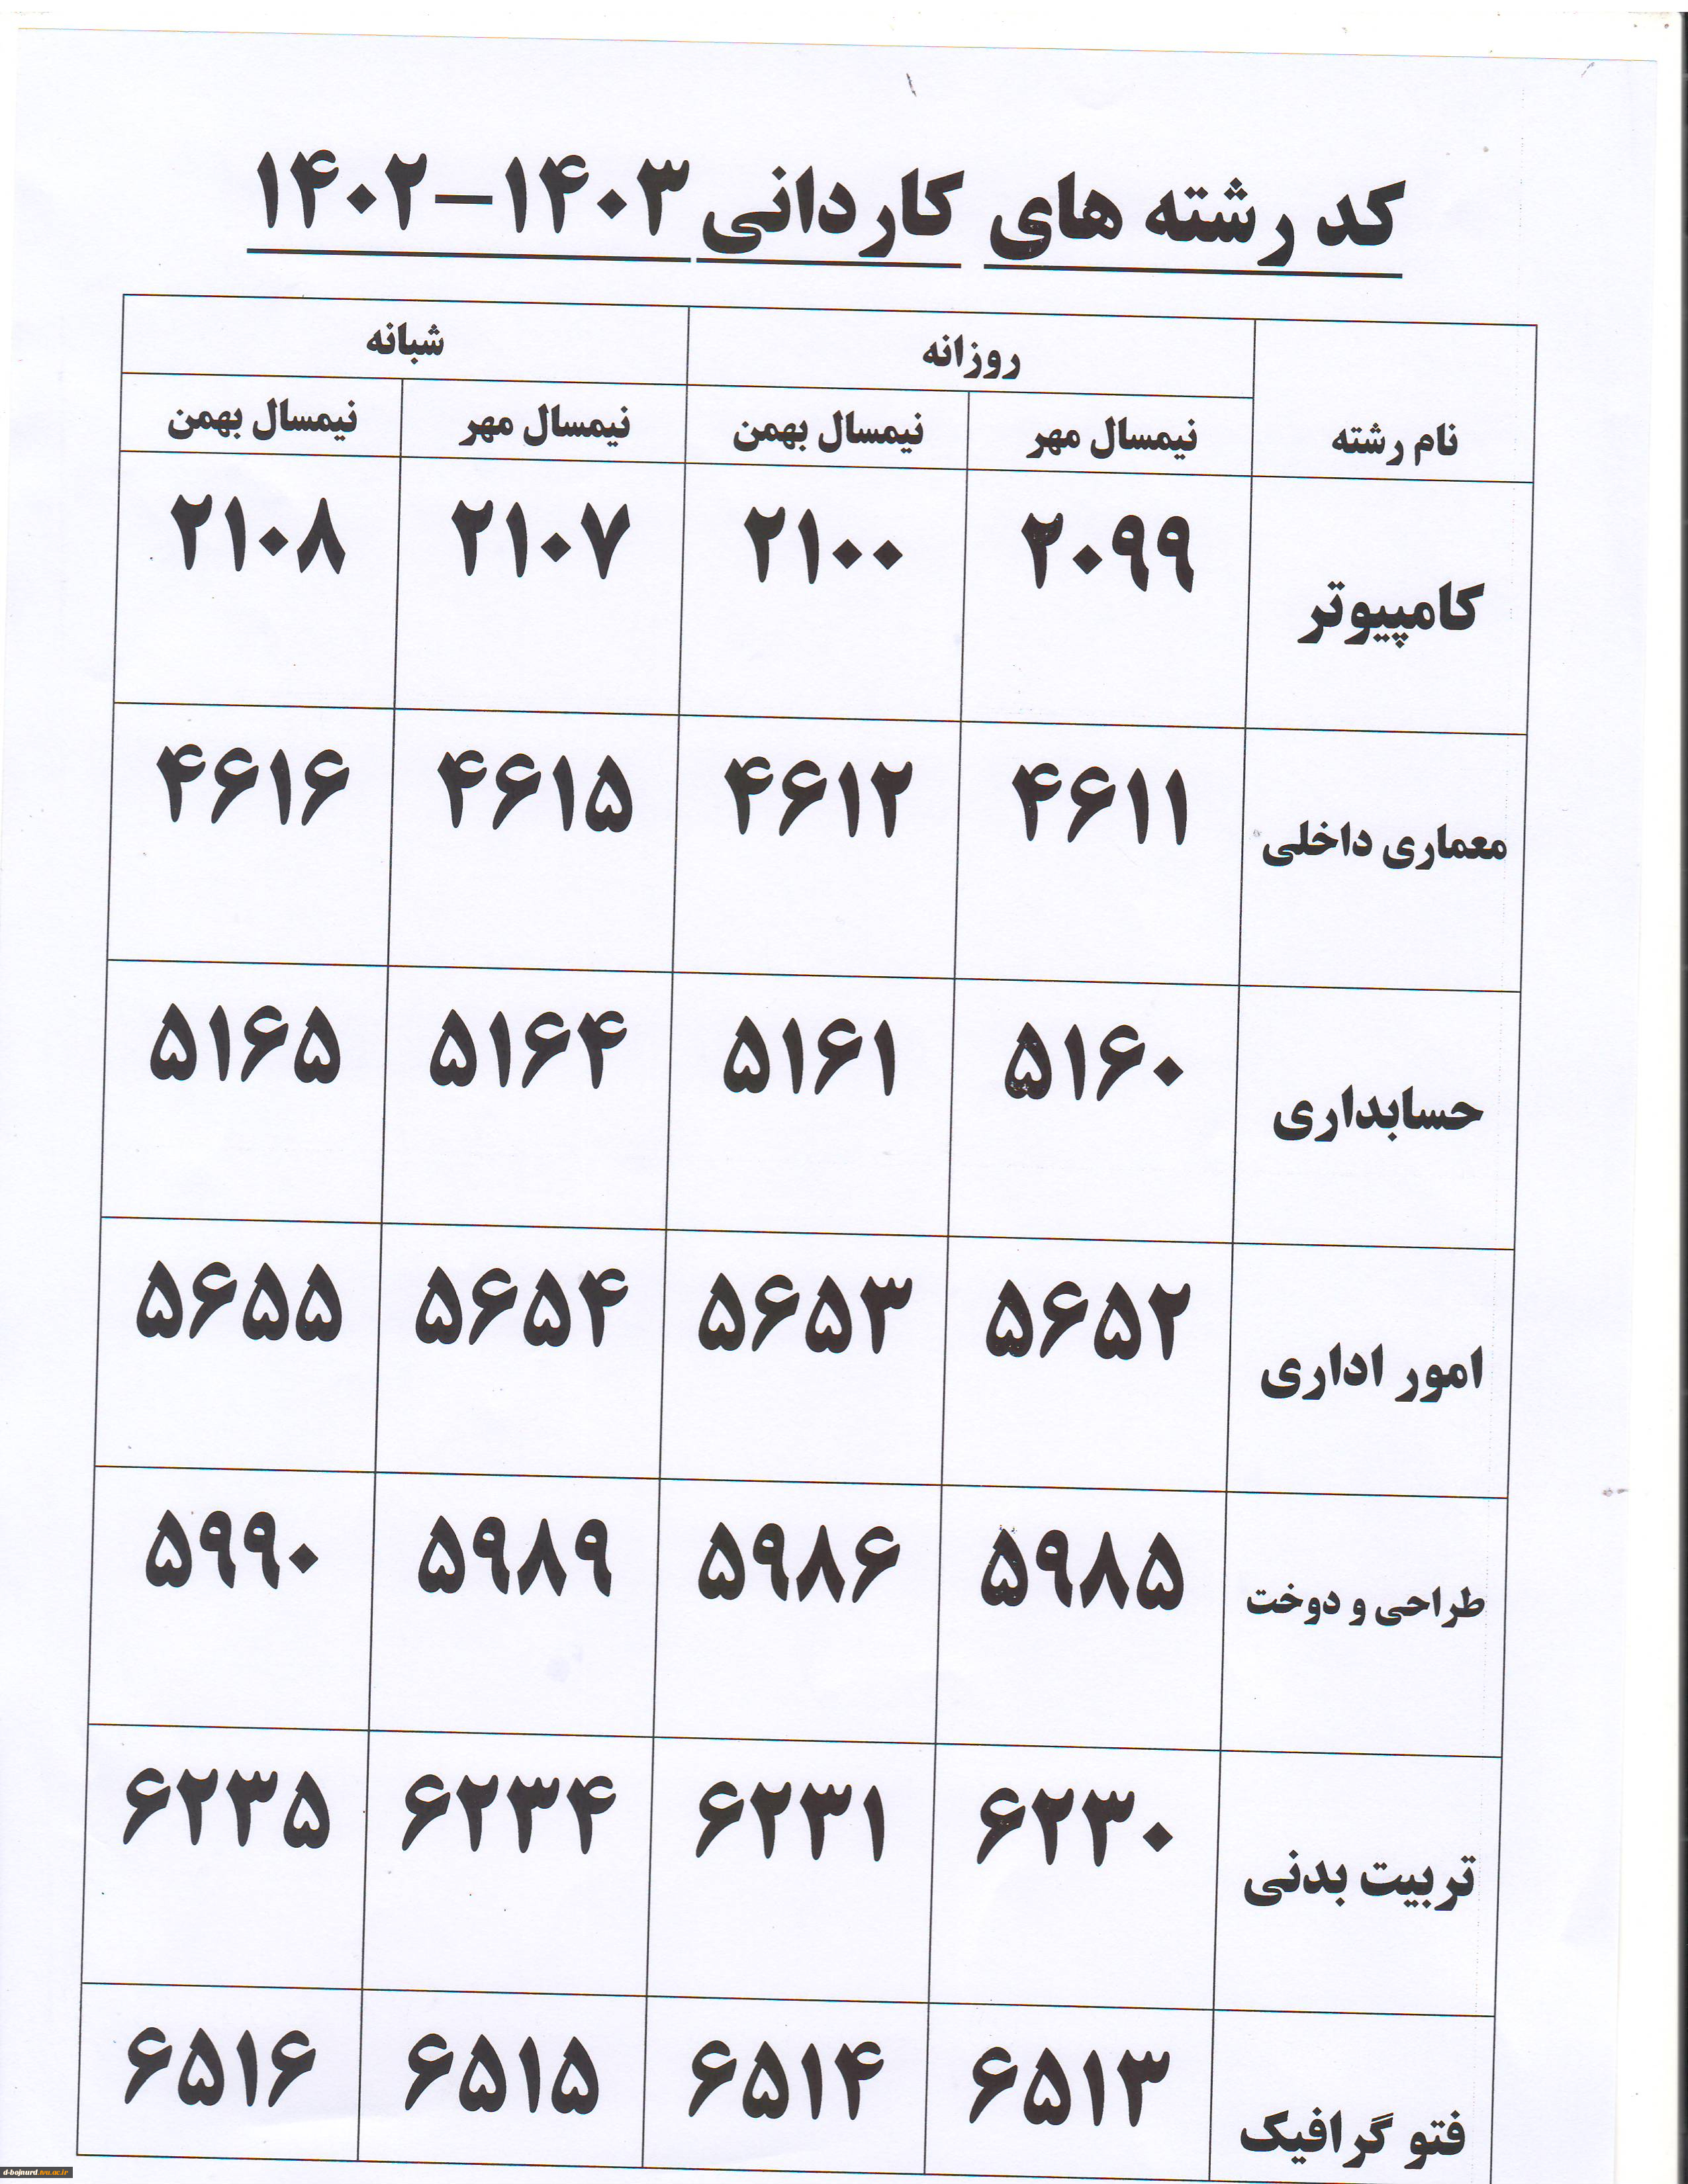 کد رشته های کاردانی ۱۴۰۳-۱۴۰۲
نام رشته روزانه شبانه
نیمسال مهر نیمسال بهمن نیمسال مهر نیمسال بهمن
کامپیوتر ۲۰۹۹ ۲۱۰۰ ۲۱۰۷ ۲۱۰۸
معماری داخلی ۴۶۱۱ ۴۶۱۲ ۴۶۱۵ ۴۶۱۶
حسابداری ۵۱۶۰ ۵۱۶۱ ۵۱۶۴ ۵۱۶۵
امور اداری ۵۶۵۲ ۵۶۵۳ ۵۶۵۴ ۵۶۵۵
طراحی و دوخت ۵۹۸۵ ۵۹۸۶ ۵۹۸۹ ۵۹۹۰
تربیت بدنی ۶۲۳۰ ۶۲۳۱ ۶۲۳۴ ۶۲۳۵
فتو گرافیک ۶۵۱۳ ۶۵۱۴ ۶۵۱۵ ۶۵۱۶
d-bojnurd.tvu.ac.ir